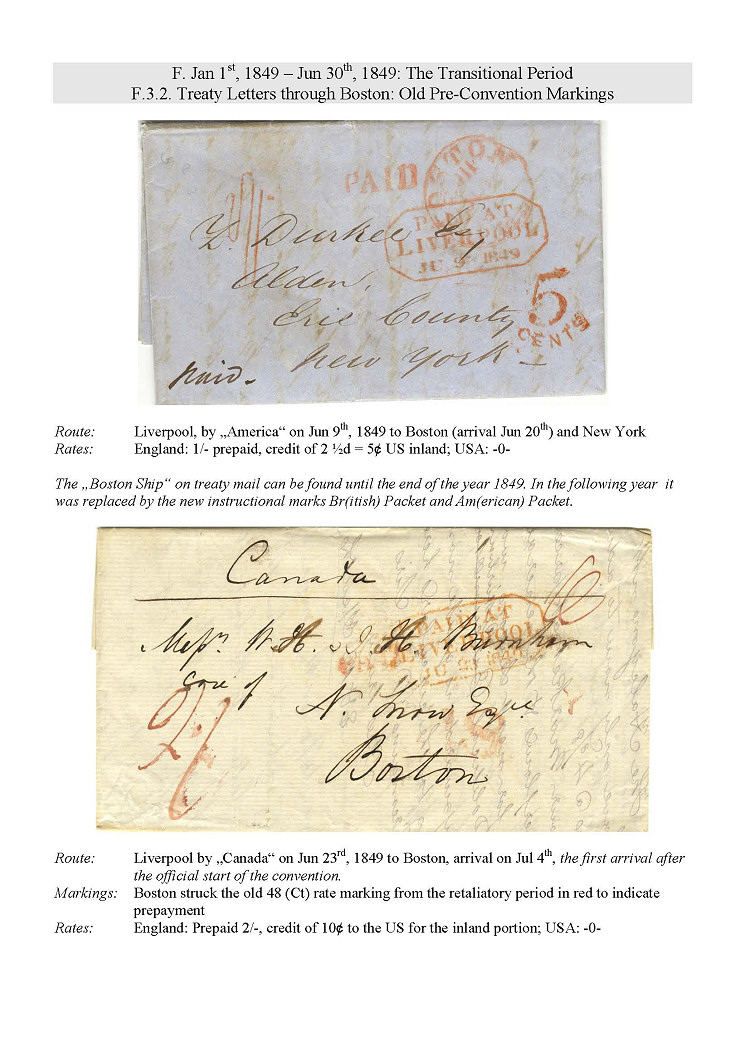 F. Jan 1st, 1849 – Jun 30th, 1849: The Transitional Period
F.3.2. Treaty Letters through Boston: Old Pre-Convention Markings
BOSTON
PAID
PAID AT
LIVERPOOL
JU 9 1849
Z. Durkee Esq
Alden,
Erie County
New York
5
CENTS
paid
Route: Liverpool, by „America“ on Jun 9th, 1849 to Boston (arrival Jun 20th) and New York
Rates: England: 1/- prepaid, credit of 2 ½d = 5¢ US inland; USA: -0-
The „Boston Ship“ on treaty mail can be found until the end of the year 1849. In the following year it
was replaced by the new instructional marks Br(itish) Packet and Am(erican) Packet.
Canada
PAID AT
LIVERPOOL
Messrs W. H. & J. H. Burnham
Care of
N. Snow Esqre
Boston
2/
Route: Liverpool by „Canada“ on Jun 23rd, 1849 to Boston, arrival on Jul 4th, the first arrival after
the official start of the convention.
Markings: Boston struck the old 48 (Ct) rate marking from the retaliatory period in red to indicate
prepayment
Rates: England: Prepaid 2/-, credit of 10¢ to the US for the inland portion; USA: -0-